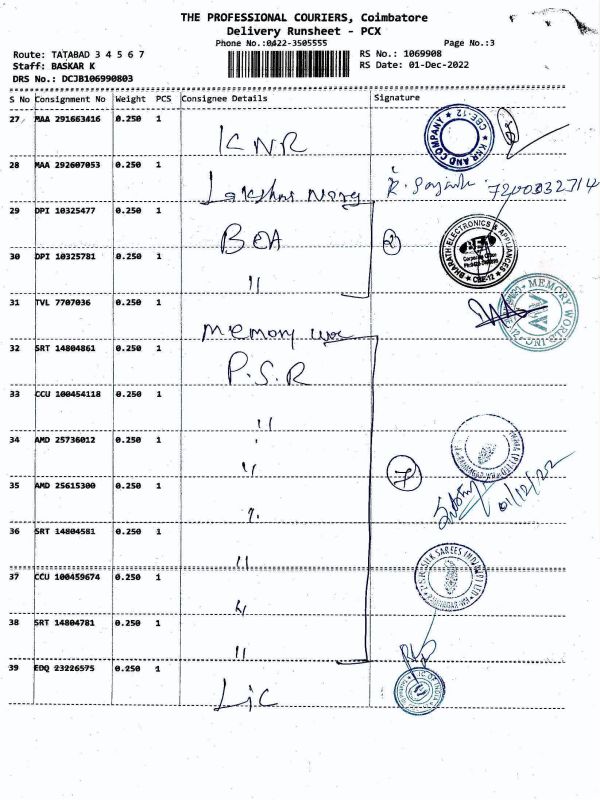 THE PROFESSIONAL COURIERS, Coimbatore
Delivery Runsheet - PCX
Phone No.:0422-3505555 Page No.:3
Route: TATABAD 3 4 5 6 7 RS No.: 1069908
Staff: BASKAR K RS Date: 01-Dec-2022
DRS No.: DCJB106990803
S No Consignment No Weight PCS Consignee Details Signature
27 MAA 291663416 0.250 1 KNR
KNR AND COMPANY ★ CBE-12 ★
28 MAA 292607053 0.250 1 Lakshmi
R. 7200032714
29 DPI 10325477 0.250 1 BEA
②
BHARATH ELECTRONICS & APPLIANCES
BEA
Corporate Office
★ CBE-12 ★
30 DPI 10325781 0.250 1 〃
31 TVL 7707036 0.250 1 memory
MEMORY WORLD INC
32 SRT 14804861 0.250 1 P.S.R
33 CCU 100454118 0.250 1 〃
34 AMD 25736012 0.250 1 〃
⑦
35 AMD 25615300 0.250 1 〃
01/12/22
36 SRT 14804581 0.250 1 〃
37 CCU 100459674 0.250 1 〃
P.S.R. SILK SAREES INDIA (P) LTD
38 SRT 14804781 0.250 1 〃
39 EDQ 23226575 0.250 1 Lic
LIC OF INDIA